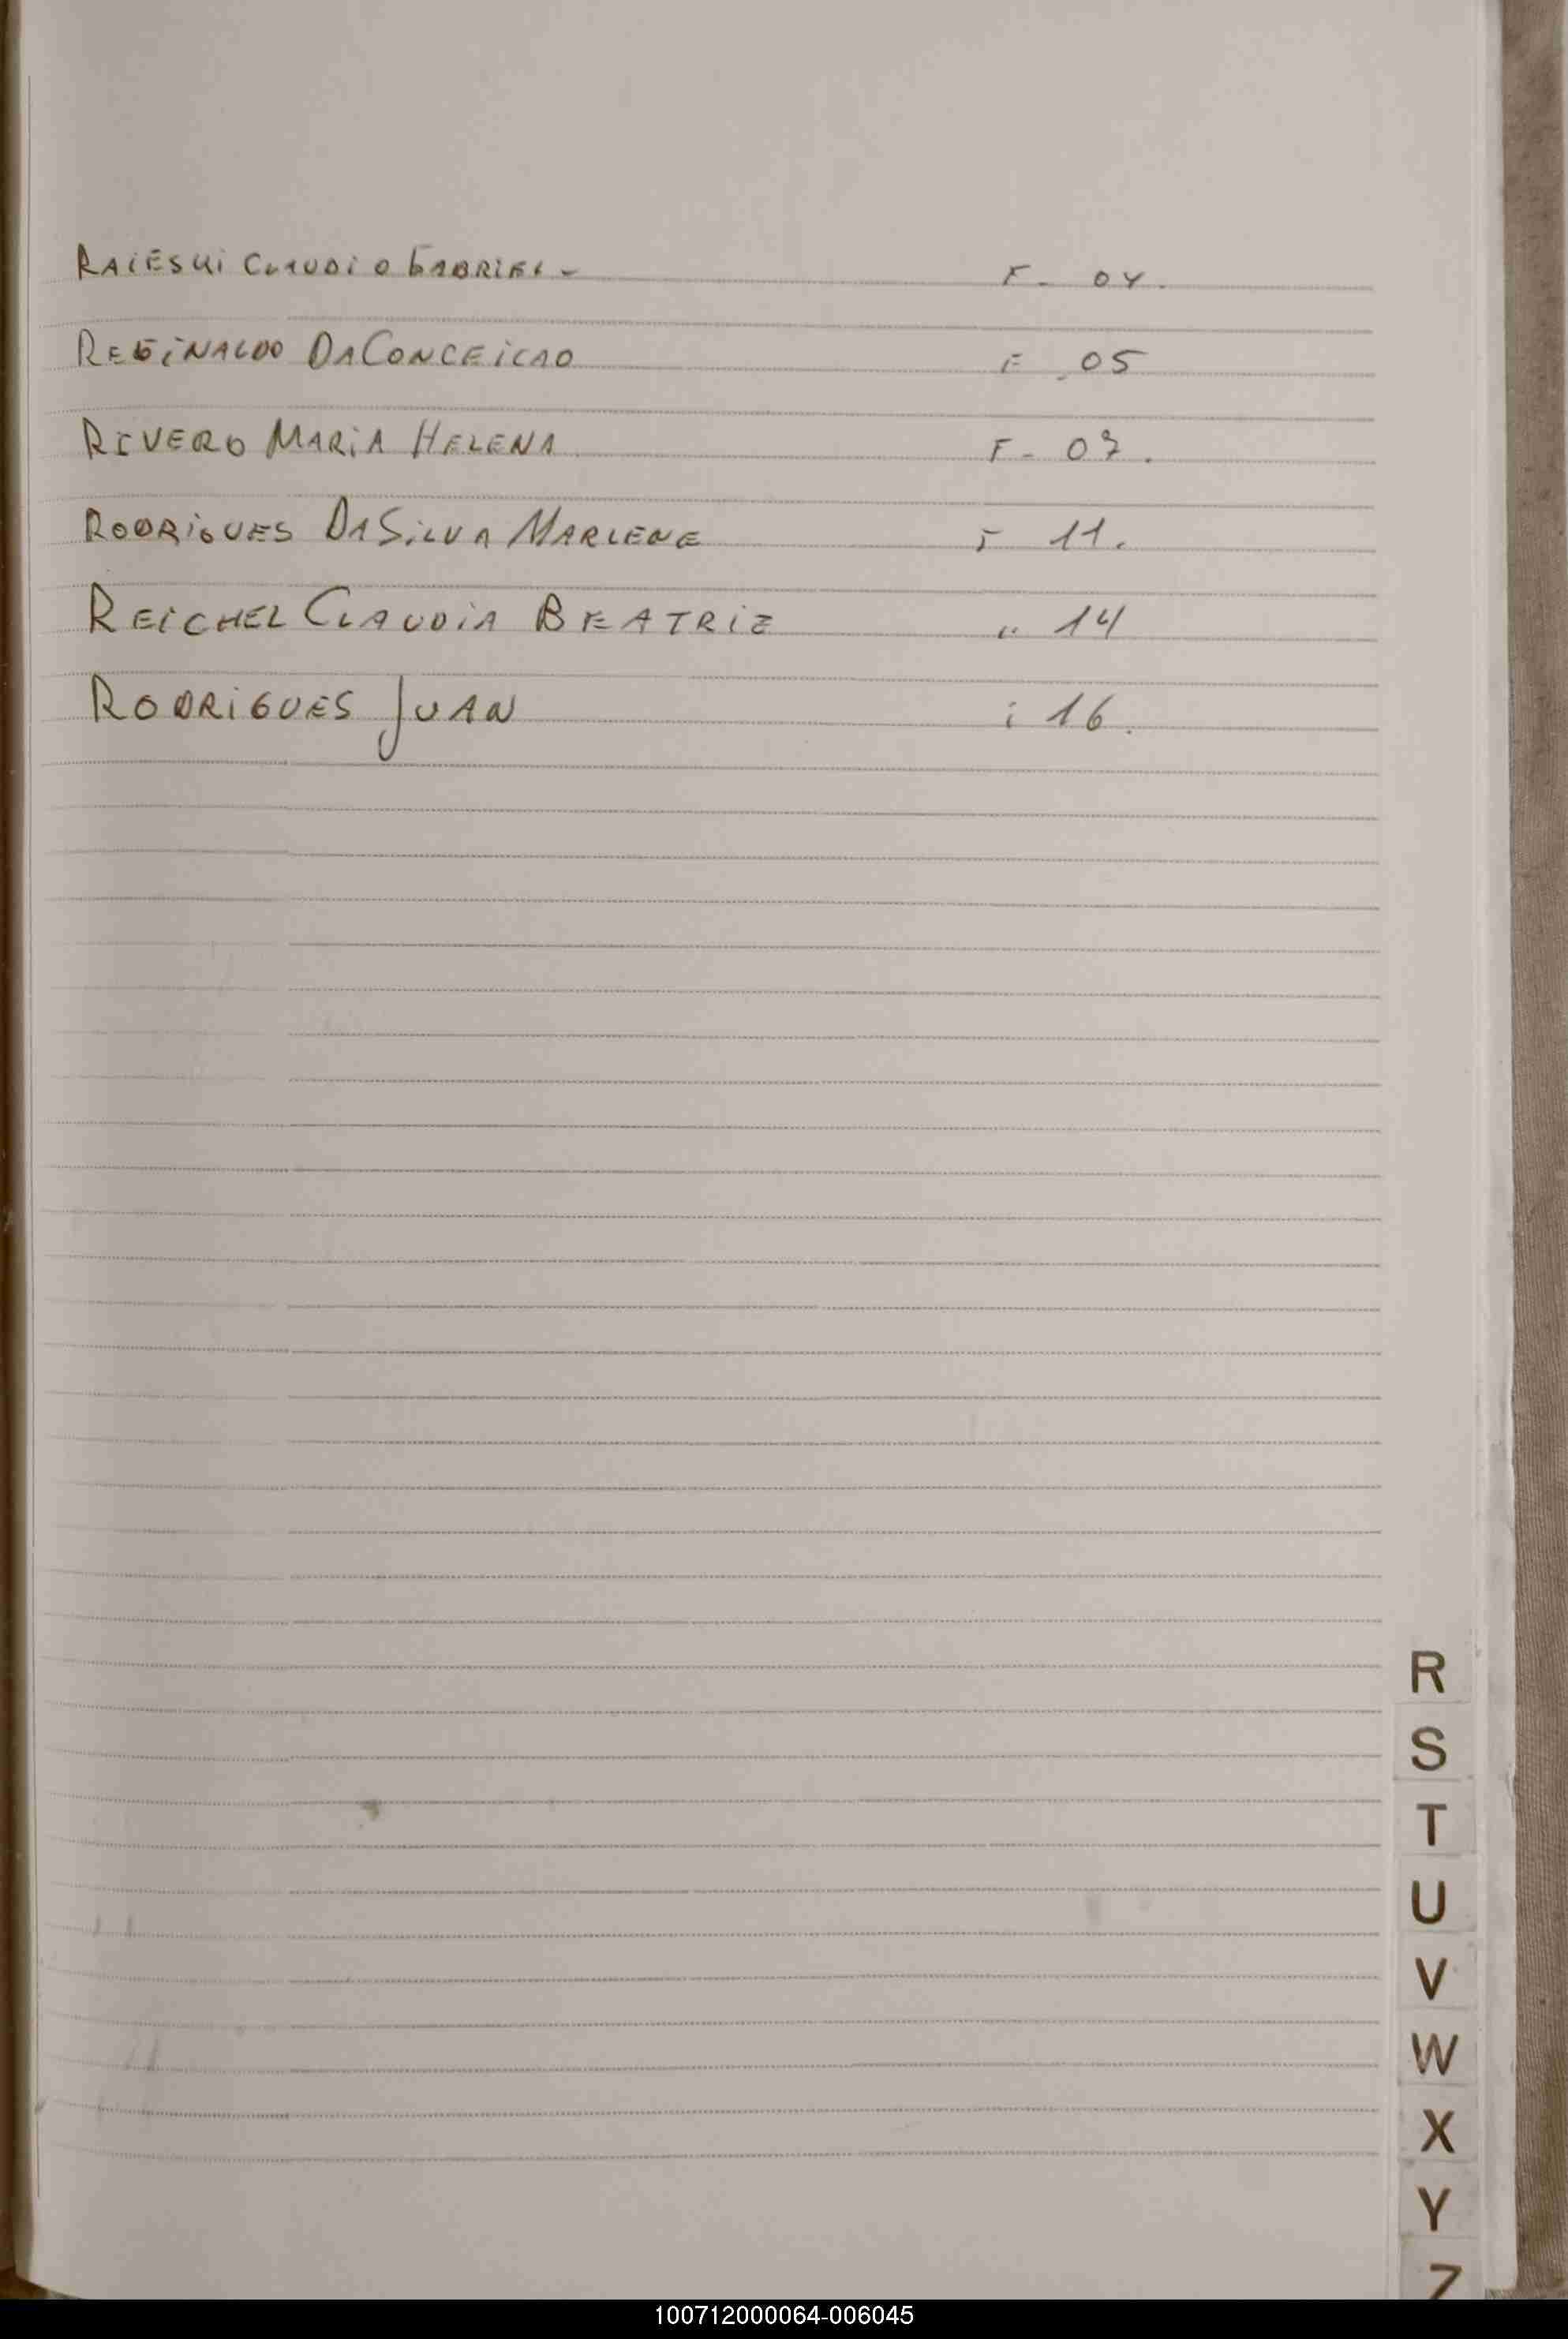 RAIESKI CLAUDIO GABRIEL - F - 04.
REGINALDO DA CONCEICAO F 05
RIVERO MARIA HELENA F - 07.
RODRIGUES DA SILVA MARLENE F 11.
REICHEL CLAUDIA BEATRIZ " 14
RODRIGUES JUAN : 16.
R
S
T
U
V
W
X
Y
Z
100712000064-006045